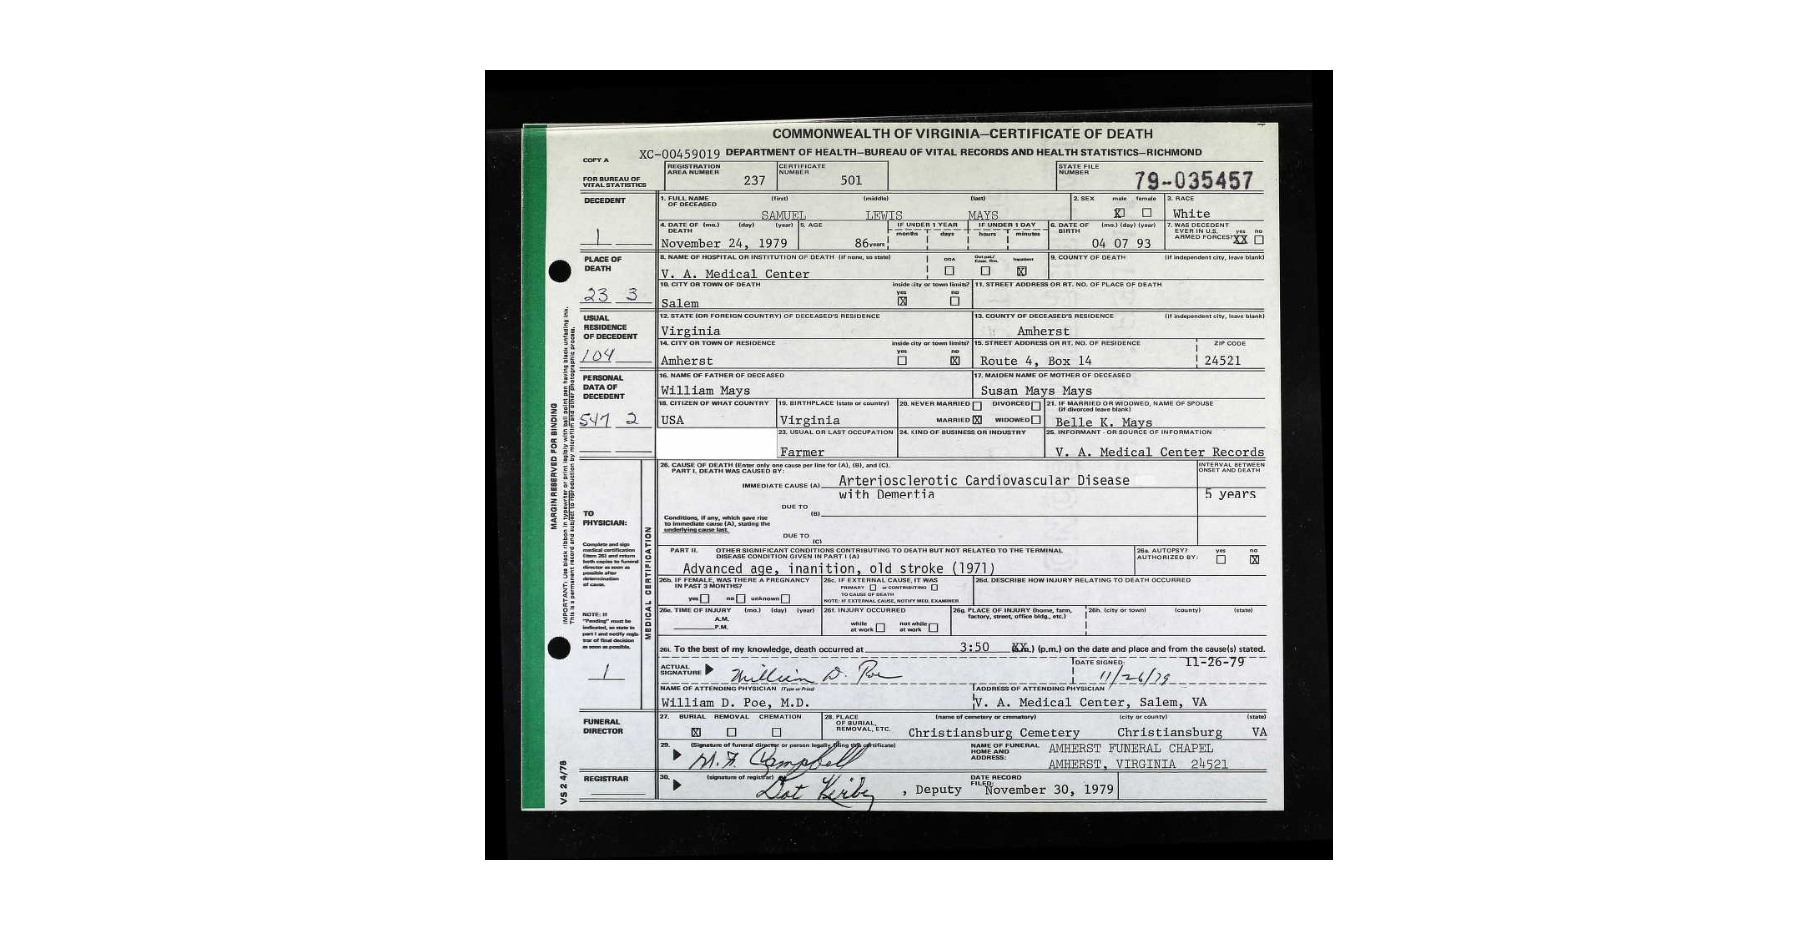 COMMONWEALTH OF VIRGINIA—CERTIFICATE OF DEATH
XC-00459019 DEPARTMENT OF HEALTH—BUREAU OF VITAL RECORDS AND HEALTH STATISTICS—RICHMOND
COPY A
FOR BUREAU OF
VITAL STATISTICS
REGISTRATION
AREA NUMBER 237
CERTIFICATE
NUMBER 501
STATE FILE
NUMBER 79-035457
DECEDENT
1
1. FULL NAME
OF DECEASED
(first) (middle) (last)
SAMUEL LEWIS MAYS
2. SEX male female
X
3. RACE
White
4. DATE OF (mo.) (day) (year)
DEATH
November 24, 1979
5. AGE
86 years
IF UNDER 1 YEAR
months days
IF UNDER 1 DAY
hours minutes
6. DATE OF (mo.) (day) (year)
BIRTH
04 07 93
7. WAS DECEDENT
EVER IN U.S.
ARMED FORCES? yes no
XX
PLACE OF
DEATH
23 3
8. NAME OF HOSPITAL OR INSTITUTION OF DEATH (if none, so state)
V. A. Medical Center
DOA Inpatient
X
9. COUNTY OF DEATH (if independent city, leave blank)
10. CITY OR TOWN OF DEATH
Salem
inside city or town limits?
yes no
X
11. STREET ADDRESS OR RT. NO. OF PLACE OF DEATH
USUAL
RESIDENCE
OF DECEDENT
104
12. STATE (OR FOREIGN COUNTRY) OF DECEASED'S RESIDENCE
Virginia
13. COUNTY OF DECEASED'S RESIDENCE (if independent city, leave blank)
Amherst
14. CITY OR TOWN OF RESIDENCE
Amherst
inside city or town limits?
yes no
X
15. STREET ADDRESS OR RT. NO. OF RESIDENCE
Route 4, Box 14
ZIP CODE
24521
PERSONAL
DATA OF
DECEDENT
547 2
16. NAME OF FATHER OF DECEASED
William Mays
17. MAIDEN NAME OF MOTHER OF DECEASED
Susan Mays Mays
18. CITIZEN OF WHAT COUNTRY
USA
19. BIRTHPLACE (state or country)
Virginia
20. NEVER MARRIED DIVORCED
MARRIED X WIDOWED
21. IF MARRIED OR WIDOWED, NAME OF SPOUSE
(if divorced leave blank)
Belle K. Mays
23. USUAL OR LAST OCCUPATION
Farmer
24. KIND OF BUSINESS OR INDUSTRY
25. INFORMANT - OR SOURCE OF INFORMATION
V. A. Medical Center Records
26. CAUSE OF DEATH (Enter only one cause per line for (A), (B), and (C).
PART I. DEATH WAS CAUSED BY:
INTERVAL BETWEEN
ONSET AND DEATH
IMMEDIATE CAUSE (A) Arteriosclerotic Cardiovascular Disease
with Demertia 5 years
DUE TO
(B)
Conditions, if any, which gave rise
to immediate cause (A), stating the
underlying cause last.
DUE TO
(C)
TO
PHYSICIAN:
Complete and sign
medical certification
(item 26) and return
both copies to funeral
director as soon as
possible after
determination
of cause.
NOTE: If
"Pending" must be
indicated, so state in
part I and notify regis-
trar of final decision
as soon as possible.
1
MEDICAL CERTIFICATION
PART II. OTHER SIGNIFICANT CONDITIONS CONTRIBUTING TO DEATH BUT NOT RELATED TO THE TERMINAL
DISEASE CONDITION GIVEN IN PART I (A)
Advanced age, inanition, old stroke (1971)
26a. AUTOPSY? yes no
AUTHORIZED BY: X
26b. IF FEMALE, WAS THERE A PREGNANCY
IN PAST 3 MONTHS?
yes no unknown
26c. IF EXTERNAL CAUSE, IT WAS
PRIMARY or CONTRIBUTING
TO CAUSE OF DEATH
NOTE: IF EXTERNAL CAUSE, NOTIFY MED. EXAMINER
26d. DESCRIBE HOW INJURY RELATING TO DEATH OCCURRED
26e. TIME OF INJURY (mo.) (day) (year)
A.M.
P.M.
26f. INJURY OCCURRED
while at work not while at work
26g. PLACE OF INJURY (home, farm,
factory, street, office bldg., etc.)
26h. (city or town) (county) (state)
26i. To the best of my knowledge, death occurred at 3:50 (a.m.) (p.m.) on the date and place and from the cause(s) stated.
ACTUAL
SIGNATURE William D. Poe
DATE SIGNED 11-26-79
11/26/79
NAME OF ATTENDING PHYSICIAN (Type or Print)
William D. Poe, M.D.
ADDRESS OF ATTENDING PHYSICIAN
V. A. Medical Center, Salem, VA
FUNERAL
DIRECTOR
27. BURIAL REMOVAL CREMATION
X
28. PLACE
OF BURIAL,
REMOVAL, ETC.
(name of cemetery or crematory) (city or county) (state)
Christiansburg Cemetery Christiansburg VA
29. (Signature of funeral director or person legally filing this certificate)
M. F. Campbell
NAME OF FUNERAL
HOME AND
ADDRESS:
AMHERST FUNERAL CHAPEL
AMHERST, VIRGINIA 24521
REGISTRAR
30. (signature of registrar)
Dot Kirby , Deputy
DATE RECORD
FILED: November 30, 1979
VS 2 4/78
MARGIN RESERVED FOR BINDING